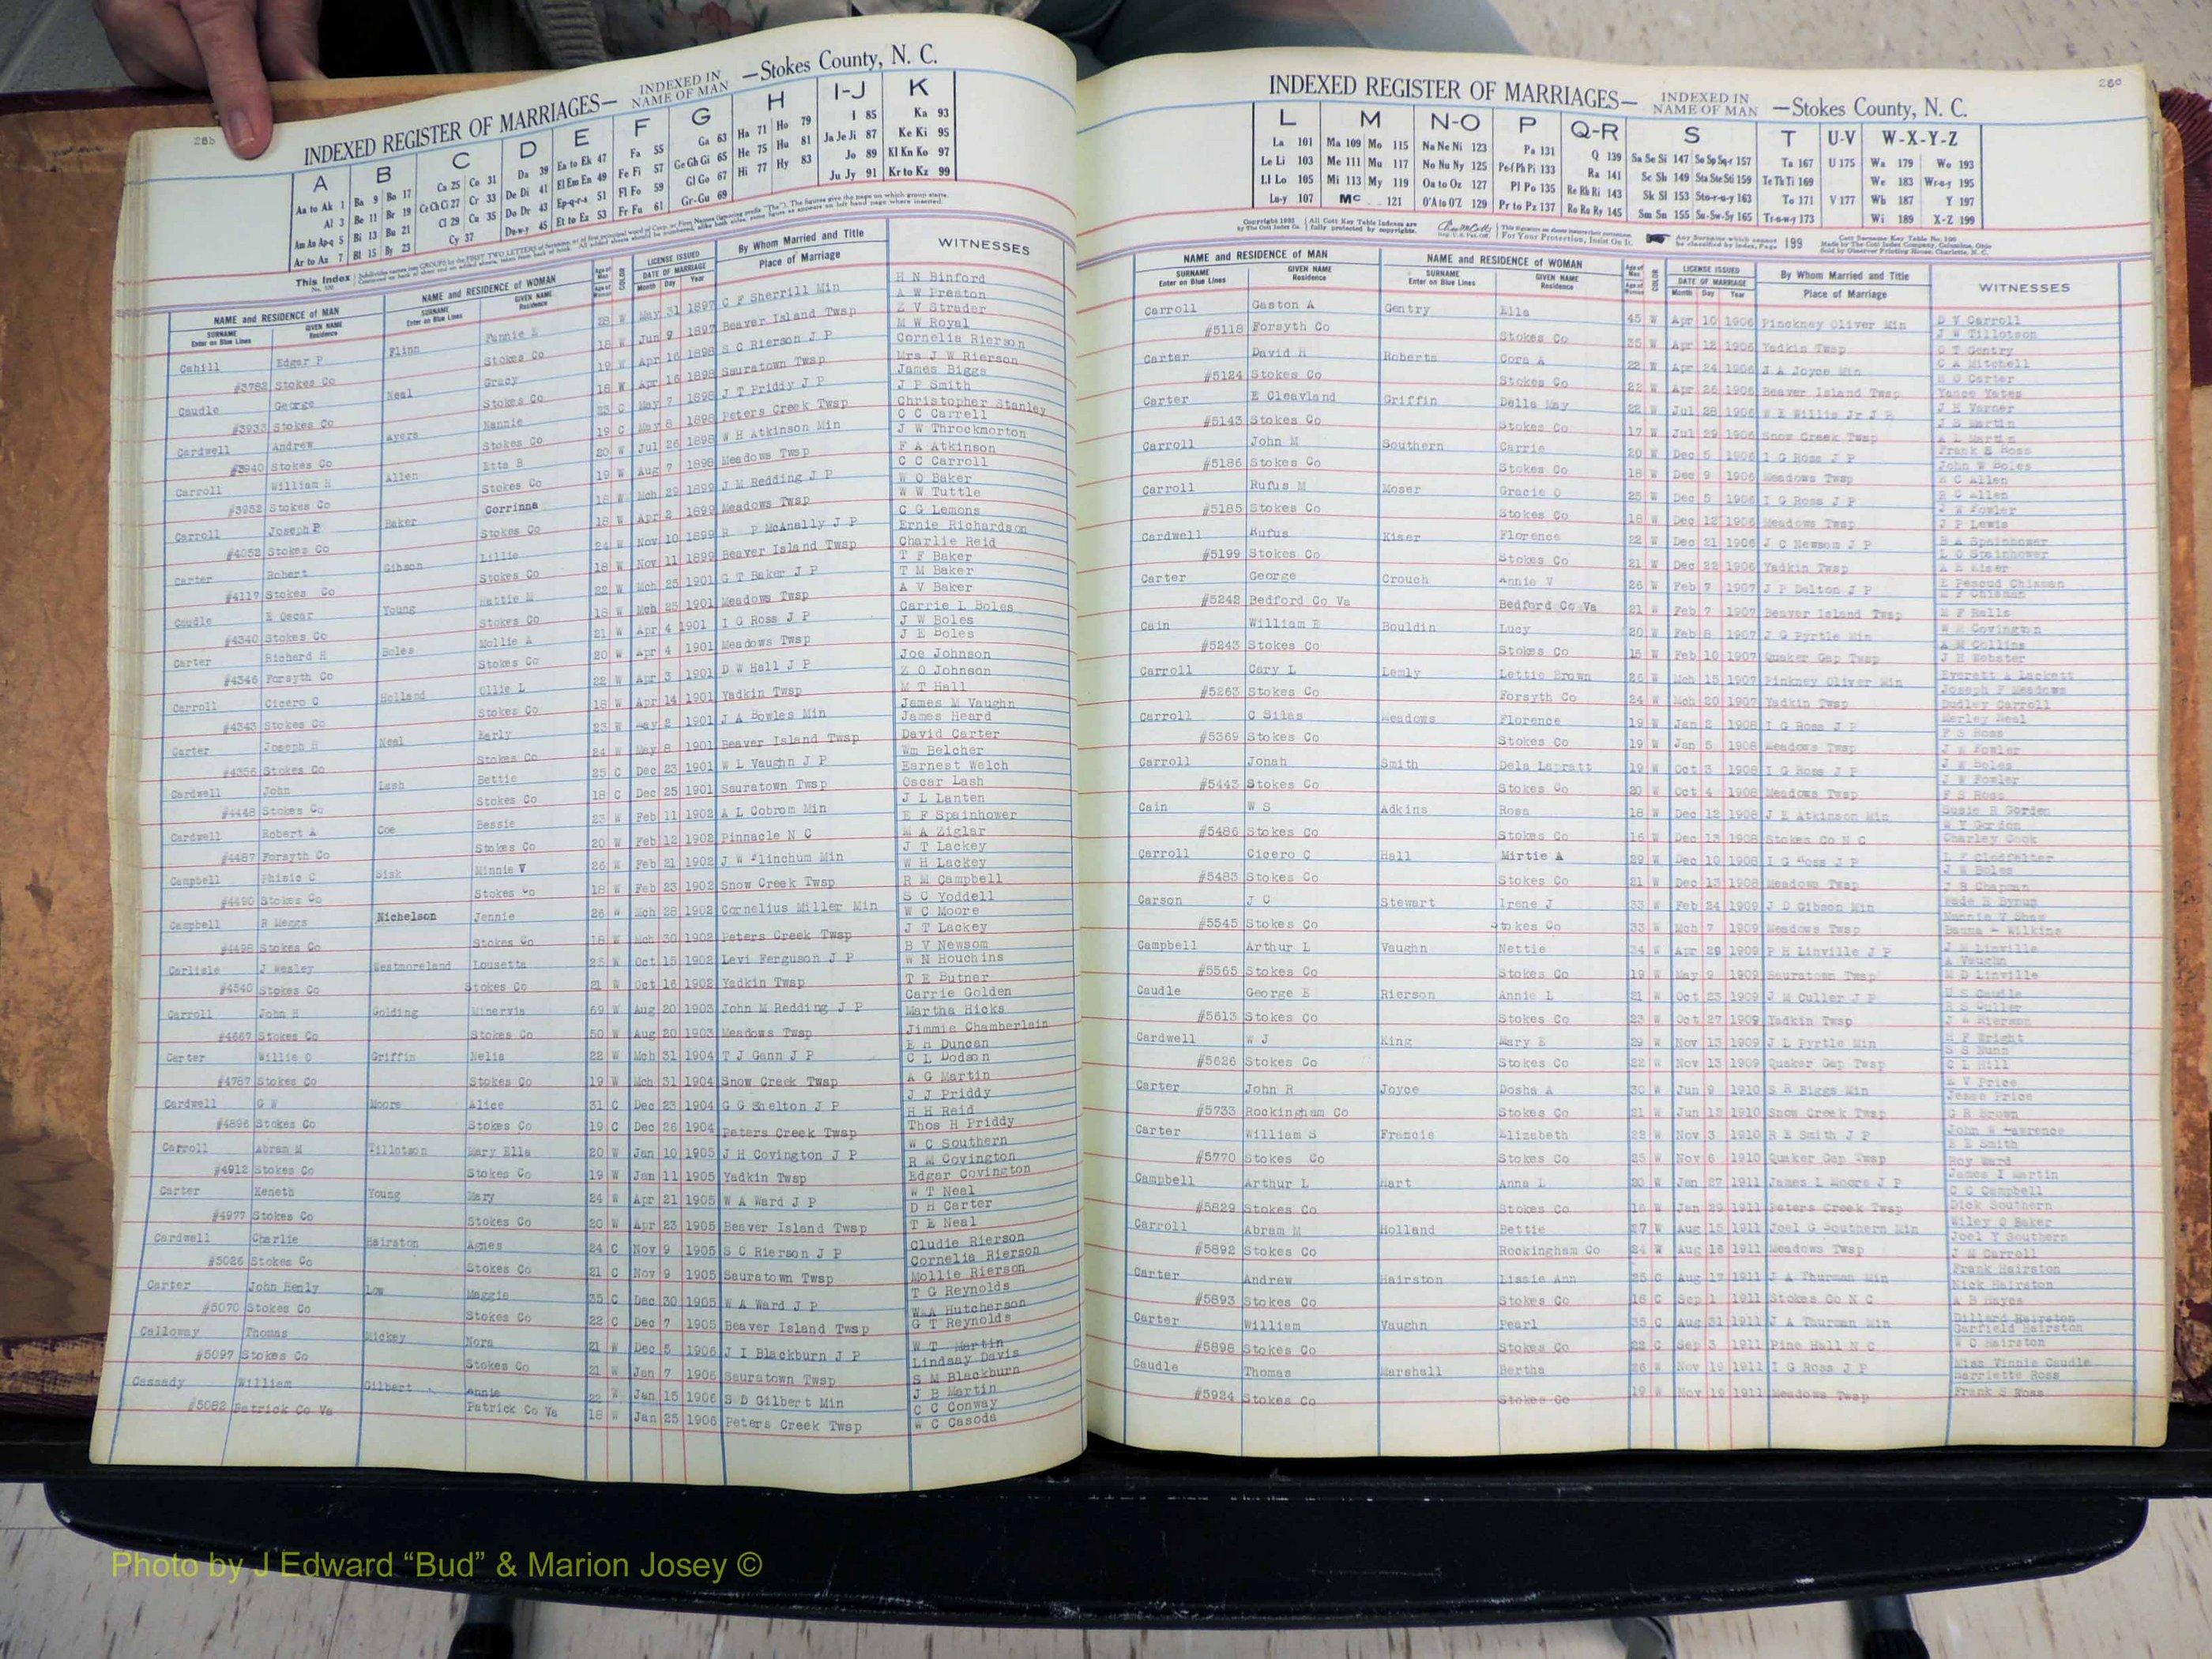 26b
INDEXED REGISTER OF MARRIAGES— INDEXED IN NAME OF MAN —Stokes County, N. C.
A B C D E F G H I-J K
Aa to Ak 1 Ba 9 Bo 17 Ca 25 Co 31 Da 39 Ea to Ek 47 Fa 55 Ga 63 Ha 71 Ho 79 I 85 Ka 93
Al 3 Be 11 Br 19 Ce Ch Ci 27 Cr 33 De Di 41 El Em En 49 Fe Fi 57 Ge Gh Gi 65 He 75 Hu 81 Ja Je Ji 87 Ke Ki 95
Am An Ap-q 5 Bi 13 Bu 21 Cl 29 Cu 35 Do Dr 43 Ep-q-r-s 51 Fl Fo 59 Gl Go 67 Hi 77 Hy 83 Jo 89 Kl Kn Ko 97
Ar to Az 7 Bl 15 By 23 Cy 37 Du-w-y 45 Et to Ez 53 Fr Fu 61 Gr-Gu 69 Ju Jy 91 Kr to Kz 99
This Index
NAME and RESIDENCE of MAN NAME and RESIDENCE of WOMAN LICENSE ISSUED By Whom Married and Title WITNESSES
SURNAME GIVEN NAME SURNAME GIVEN NAME DATE OF MARRIAGE Place of Marriage
Enter on Blue Lines Residence Enter on Blue Lines Residence Month Day Year
Cahill Edgar P Flinn Fannie E 28 W May 31 1897 C F Sherrill Min H N Binford
A W Preston
#3782 Stokes Co Stokes Co 18 W Jun 9 1897 Beaver Island Twsp Z V Strader
Caudle George Neal Gracy 19 W Apr 16 1898 S C Rierson J P M W Royal
Cornelia Rierson
#3933 Stokes Co Stokes Co 18 W Apr 16 1898 Sauratown Twsp Mrs J W Rierson
Cardwell Andrew Ayers Nannie 23 C May 7 1898 J T Priddy J P James Biggs
J P Smith
#3940 Stokes Co Stokes Co 19 C May 8 1898 Peters Creek Twsp Christopher Stanley
Carroll William H Allen Etta B 20 W Jul 26 1898 W H Atkinson Min C C Carrell
J W Throckmorton
#3952 Stokes Co Stokes Co 19 W Aug 7 1898 Meadows Twsp F A Atkinson
Carroll Joseph P Baker Corrinna 18 W Mch 29 1899 J M Redding J P C C Carroll
W O Baker
#4052 Stokes Co Stokes Co 18 W Apr 2 1899 Meadows Twsp W W Tuttle
Carter Robert Gibson Lillie 24 W Nov 10 1899 R P McAnally J P C G Lemons
Ernie Richardson
#4117 Stokes Co Stokes Co 18 W Nov 11 1899 Beaver Island Twsp Charlie Reid
Caudle E Oscar Young Hattie M 22 W Mch 25 1901 G T Baker J P T F Baker
T M Baker
#4340 Stokes Co Stokes Co 18 W Mch 25 1901 Meadows Twsp A V Baker
Carter Richard H Boles Mollie A 21 W Apr 4 1901 I G Ross J P Carrie L Boles
J W Boles
#4346 Forsyth Co Stokes Co 20 W Apr 4 1901 Meadows Twsp J E Boles
Carroll Cicero C Holland Ollie L 22 W Apr 3 1901 D W Hall J P Joe Johnson
Z O Johnson
#4343 Stokes Co Stokes Co 18 W Apr 14 1901 Yadkin Twsp M T Hall
Carter Joseph H Neal Early 23 W May 2 1901 J A Bowles Min James M Vaughn
James Heard
#4356 Stokes Co Stokes Co 24 W May 8 1901 Beaver Island Twsp David Carter
Cardwell John Lash Bettie 25 C Dec 23 1901 W L Vaughn J P Wm Belcher
Earnest Welch
#4448 Stokes Co Stokes Co 18 C Dec 25 1901 Sauratown Twsp Oscar Lash
Cardwell Robert A Coe Bessie 23 W Feb 11 1902 A L Cobrom Min J L Lanten
E F Spainhower
#4487 Forsyth Co Stokes Co 20 W Feb 12 1902 Pinnacle N C M A Ziglar
Campbell Phisic C Sisk Minnie V 26 W Feb 21 1902 J W Flinchum Min J T Lackey
W H Lackey
#4490 Stokes Co Stokes Co 18 W Feb 23 1902 Snow Creek Twsp R M Campbell
Campbell R Meggs Nichelson Jennie 26 W Mch 28 1902 Cornelius Miller Min S C Yoddell
W C Moore
#4498 Stokes Co Stokes Co 18 W Mch 30 1902 Peters Creek Twsp J T Lackey
Carlisle J Wesley Westmoreland Lousetta 25 W Oct 15 1902 Levi Ferguson J P B V Newsom
W N Houchins
#4540 Stokes Co Stokes Co 21 W Oct 16 1902 Yadkin Twsp T E Butner
Carroll John H Golding Minervia 69 W Aug 20 1903 John M Redding J P Carrie Golden
Martha Hicks
#4667 Stokes Co Stokes Co 50 W Aug 20 1903 Meadows Twsp Jimmie Chamberlain
Carter Willie O Griffin Nelia 22 W Mch 31 1904 T J Gann J P E H Duncan
C L Dodson
#4787 Stokes Co Stokes Co 19 W Mch 31 1904 Snow Creek Twsp A G Martin
Cardwell G W Moore Alice 31 C Dec 23 1904 G G Shelton J P J J Priddy
H H Reid
#4896 Stokes Co Stokes Co 19 C Dec 26 1904 Peters Creek Twsp Thos H Priddy
Carroll Abram M Tillotson Mary Ella 20 W Jan 10 1905 J H Covington J P W C Southern
R M Covington
#4912 Stokes Co Stokes Co 19 W Jan 11 1905 Yadkin Twsp Edgar Covington
Carter Keneth Young Mary 24 W Apr 21 1905 W A Ward J P W T Neal
D H Carter
#4977 Stokes Co Stokes Co 20 W Apr 23 1905 Beaver Island Twsp T E Neal
Cardwell Charlie Hairston Agnes 24 C Nov 9 1905 S C Rierson J P Cludie Rierson
Cornelia Rierson
#5026 Stokes Co Stokes Co 21 C Nov 9 1905 Sauratown Twsp Mollie Rierson
Carter John Henly Low Maggie 35 C Dec 30 1905 W A Ward J P T G Reynolds
W A Hutcherson
#5070 Stokes Co Stokes Co 22 C Dec 7 1905 Beaver Island Twsp G T Reynolds
Calloway Thomas Mickey Nora 21 W Dec 5 1906 J I Blackburn J P W T Martin
Lindsay Davis
#5097 Stokes Co Stokes Co 21 W Jan 7 1906 Sauratown Twsp S M Blackburn
Cassady William Gilbert Annie 22 W Jan 15 1906 S D Gilbert Min J B Martin
C C Conway
#5082 Patrick Co Va Patrick Co Va 18 W Jan 25 1906 Peters Creek Twsp W C Casoda
26c
INDEXED REGISTER OF MARRIAGES— INDEXED IN NAME OF MAN —Stokes County, N. C.
L M N-O P Q-R S T U-V W-X-Y-Z
La 101 Ma 109 Mo 115 Na Ne Ni 123 Pa 131 Q 139 Sa Se Si 147 So Sp Sq-r 157 Ta 167 U 175 Wa 179 Wo 193
Le Li 103 Me 111 Mu 117 No Nu Ny 125 Pe-f Ph Pi 133 Ra 141 Sc Sh 149 Sta Ste Sti 159 Te Th Ti 169 We 183 Wr-u-y 195
Ll Lo 105 Mi 113 My 119 Oa to Oz 127 Pl Po 135 Re Rh Ri 143 Sk Sl 153 Sto-r-u-y 163 To 171 V 177 Wh 187 Y 197
Lu-y 107 Mc 121 O'A to O'Z 129 Pr to Pz 137 Ro Ru Ry 145 Sm Sn 155 Su-Sw-Sy 165 Tr-u-w-y 173 Wi 189 X-Z 199
NAME and RESIDENCE of MAN NAME and RESIDENCE of WOMAN LICENSE ISSUED By Whom Married and Title WITNESSES
SURNAME GIVEN NAME SURNAME GIVEN NAME DATE OF MARRIAGE Place of Marriage
Enter on Blue Lines Residence Enter on Blue Lines Residence Month Day Year
Carroll Gaston A Gentry Ella 45 W Apr 10 1906 Pinckney Oliver Min D V Carroll
J W Tillotson
#5118 Forsyth Co Stokes Co 35 W Apr 12 1906 Yadkin Twsp O T Gentry
Carter David H Roberts Cora A 22 W Apr 24 1906 J A Joyce Min C A Mitchell
H O Carter
#5124 Stokes Co Stokes Co 22 W Apr 26 1906 Beaver Island Twsp Yance Yates
Carter E Cleavland Griffin Della May 22 W Jul 28 1906 W E Willis Jr J P J H Varner
J S Martin
#5143 Stokes Co Stokes Co 17 W Jul 29 1906 Snow Creek Twsp A L Martin
Carroll John M Southern Carrie 20 W Dec 5 1906 I G Ross J P Frank S Ross
John W Boles
#5186 Stokes Co Stokes Co 18 W Dec 9 1906 Meadows Twsp H C Allen
Carroll Rufus M Moser Gracie O 25 W Dec 5 1906 I G Ross J P R C Allen
J W Fowler
#5185 Stokes Co Stokes Co 18 W Dec 12 1906 Meadows Twsp J P Lewis
Cardwell Rufus Kiser Florence 22 W Dec 21 1906 J C Newsom J P B A Spainhower
L O Spainhower
#5199 Stokes Co Stokes Co 21 W Dec 22 1906 Yadkin Twsp A E Kiser
Carter George Crouch Annie V 26 W Feb 7 1907 J P Dalton J P E Pescud Chisman
M F Chisman
#5242 Bedford Co Va Bedford Co Va 21 W Feb 7 1907 Beaver Island Twsp M F Ralls
Cain William E Bouldin Lucy 20 W Feb 8 1907 J G Pyrtle Min W M Covington
A M Collins
#5243 Stokes Co Stokes Co 15 W Feb 10 1907 Quaker Gap Twsp J H Webster
Carroll Cary L Lemly Lettie Brown 26 W Mch 15 1907 Pinkney Oliver Min Everett A Lackett
Joseph F Meadows
#5263 Stokes Co Forsyth Co 24 W Mch 20 1907 Yadkin Twsp Dudley Carroll
Carroll C Silas Meadows Florence 19 W Jan 2 1908 I G Ross J P Merley Neal
F S Ross
#5369 Stokes Co Stokes Co 19 W Jan 5 1908 Meadows Twsp J W Fowler
Carroll Jonah Smith Dela Lapratt 19 W Oct 3 1908 I G Ross J P J W Boles
J W Fowler
#5443 Stokes Co Stokes Co 20 W Oct 4 1908 Meadows Twsp F S Ross
Cain W S Adkins Rosa 18 W Dec 12 1908 J E Atkinson Min Susie R Gorden
W Y Gordon
#5486 Stokes Co Stokes Co 16 W Dec 13 1908 Stokes Co N C Charley Cook
Carroll Cicero C Hall Mirtie A 29 W Dec 10 1908 I G Ross J P L F Clodfelter
J W Boles
#5483 Stokes Co Stokes Co 21 W Dec 13 1908 Meadows Twsp J B Chapman
Carson J C Stewart Irene J 33 W Feb 24 1909 J D Gibson Min Wade H Bynum
Nannie V Shaw
#5545 Stokes Co Stokes Co 33 W Mch 7 1909 Meadows Twsp
Campbell Arthur L Vaughn Nettie 34 W Apr 29 1909 P H Linville J P J M Linville
A Vaughn
#5565 Stokes Co Stokes Co 19 W May 9 1909 Sauratown Twsp M D Linville
Caudle George E Rierson Annie L 21 W Oct 23 1909 J M Culler J P W S Caudle
R S Culler
#5613 Stokes Co Stokes Co 23 W Oct 27 1909 Yadkin Twsp J A Rierson
Cardwell W J King Mary E 29 W Nov 13 1909 J L Pyrtle Min H F Wright
S S Nunn
#5626 Stokes Co Stokes Co 22 W Nov 13 1909 Quaker Gap Twsp C L Hill
Carter John R Joyce Dosha A 30 W Jun 9 1910 S R Biggs Min E V Price
Jesse Price
#5733 Rockingham Co Stokes Co 21 W Jun 12 1910 Snow Creek Twsp G R Brown
Carter William S Francis Elizabeth 22 W Nov 3 1910 R E Smith J P John W Lawrence
E E Smith
#5770 Stokes Co Stokes Co 23 W Nov 6 1910 Quaker Gap Twsp Roy Ward
Campbell Arthur L Hart Anna L 20 W Jan 27 1911 James L Moore J P James I Martin
C C Campbell
#5829 Stokes Co Stokes Co 16 W Jan 29 1911 Peters Creek Twsp Dick Southern
Carroll Abram M Holland Bettie 27 W Aug 15 1911 Joel G Southern Min Wiley O Baker
Joel Y Southern
#5892 Stokes Co Rockingham Co 24 W Aug 16 1911 Meadows Twsp J M Carroll
Carter Andrew Hairston Lissie Ann 25 C Aug 17 1911 J A Thurman Min Frank Hairston
Nick Hairston
#5893 Stokes Co Stokes Co 16 C Sep 1 1911 Stokes Co N C A B Hayes
Carter William Vaughn Pearl 35 C Aug 31 1911 J A Thurman Min Dillard Hairston
Garfield Hairston
#5898 Stokes Co Stokes Co 22 C Sep 3 1911 Pine Hall N C W C Hairston
Caudle Thomas Marshall Bertha 26 W Nov 19 1911 I G Ross J P Miss Vinnie Caudle
Harriette Ross
#5924 Stokes Co Stokes Co 19 W Nov 19 1911 Meadows Twsp Frank S Ross
Photo by J Edward “Bud” & Marion Josey ©